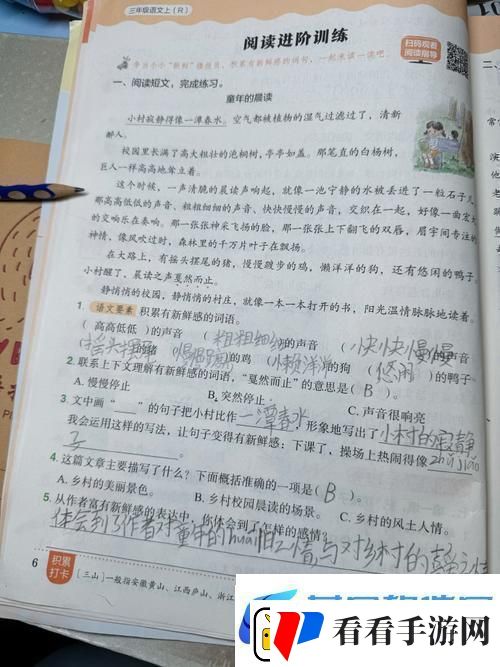 三年级语文上（R）
阅读进阶训练
扫码观看
阅读指导
一、阅读短文，完成练习。
童年的晨读
小村寂静得像一潭春水。空气都被植物的湿气过滤过了，清新
醉人。
校园里长满了高大粗壮的泡桐树，亭亭如盖。那笔直的白杨树，
巨人一样高高地耸立着。
这个时候，一声清脆的晨读声响起，就像一池宁静的水被丢进了一粒石子儿，
那高高低低的声音、粗粗细细的声音、快快慢慢的声音，交织在一起，好像一曲宏大
的交响乐在奏响。那一张张神采飞扬的脸，那一张张上下翻飞的双唇，眉宇间专注的
神情，像风吹过时，森林里的千万片叶子在飘扬。
在大路上，有摇头摆尾的猪，慢慢踱步的鸡，懒洋洋的狗，还有悠闲的鸭子。
小村醒了，晨读之声戛然而止。
静悄悄的校园，静悄悄的村庄，就像一本一本打开的书，阳光温情脉脉地读着。
1. 语文要素 积累有新鲜感的词语。
（高高低低）的声音 （粗粗细细）的声音 （快快慢慢）的声音
（摇头摆尾）的猪 的鸡 （懒洋洋）的狗 （悠闲）的鸭子
2. 联系上下文理解有新鲜感的词语，“戛然而止”的意思是（B）。
A. 慢慢停止 B. 突然停止 C. 声音很响亮
3. 文中画“____”的句子把小村比作一潭春水，形象地写出了小村的寂静
我会运用这样的写法，让句子变得有新鲜感：下课了，操场上热闹得像
4. 这篇文章主要描写了什么？下面概括准确的一项是（B）。
A. 乡村的美丽景色。 B. 乡村校园晨读的场景。 C. 乡村的风土人情。
5. 从作者富有新鲜感的表达中，你体会到了怎样的感情？
体会到了作者对童年的huái旧之情，与对乡村的
6
积累
打卡
［三山］一般指安徽黄山、江西庐山、浙江
看看手游网